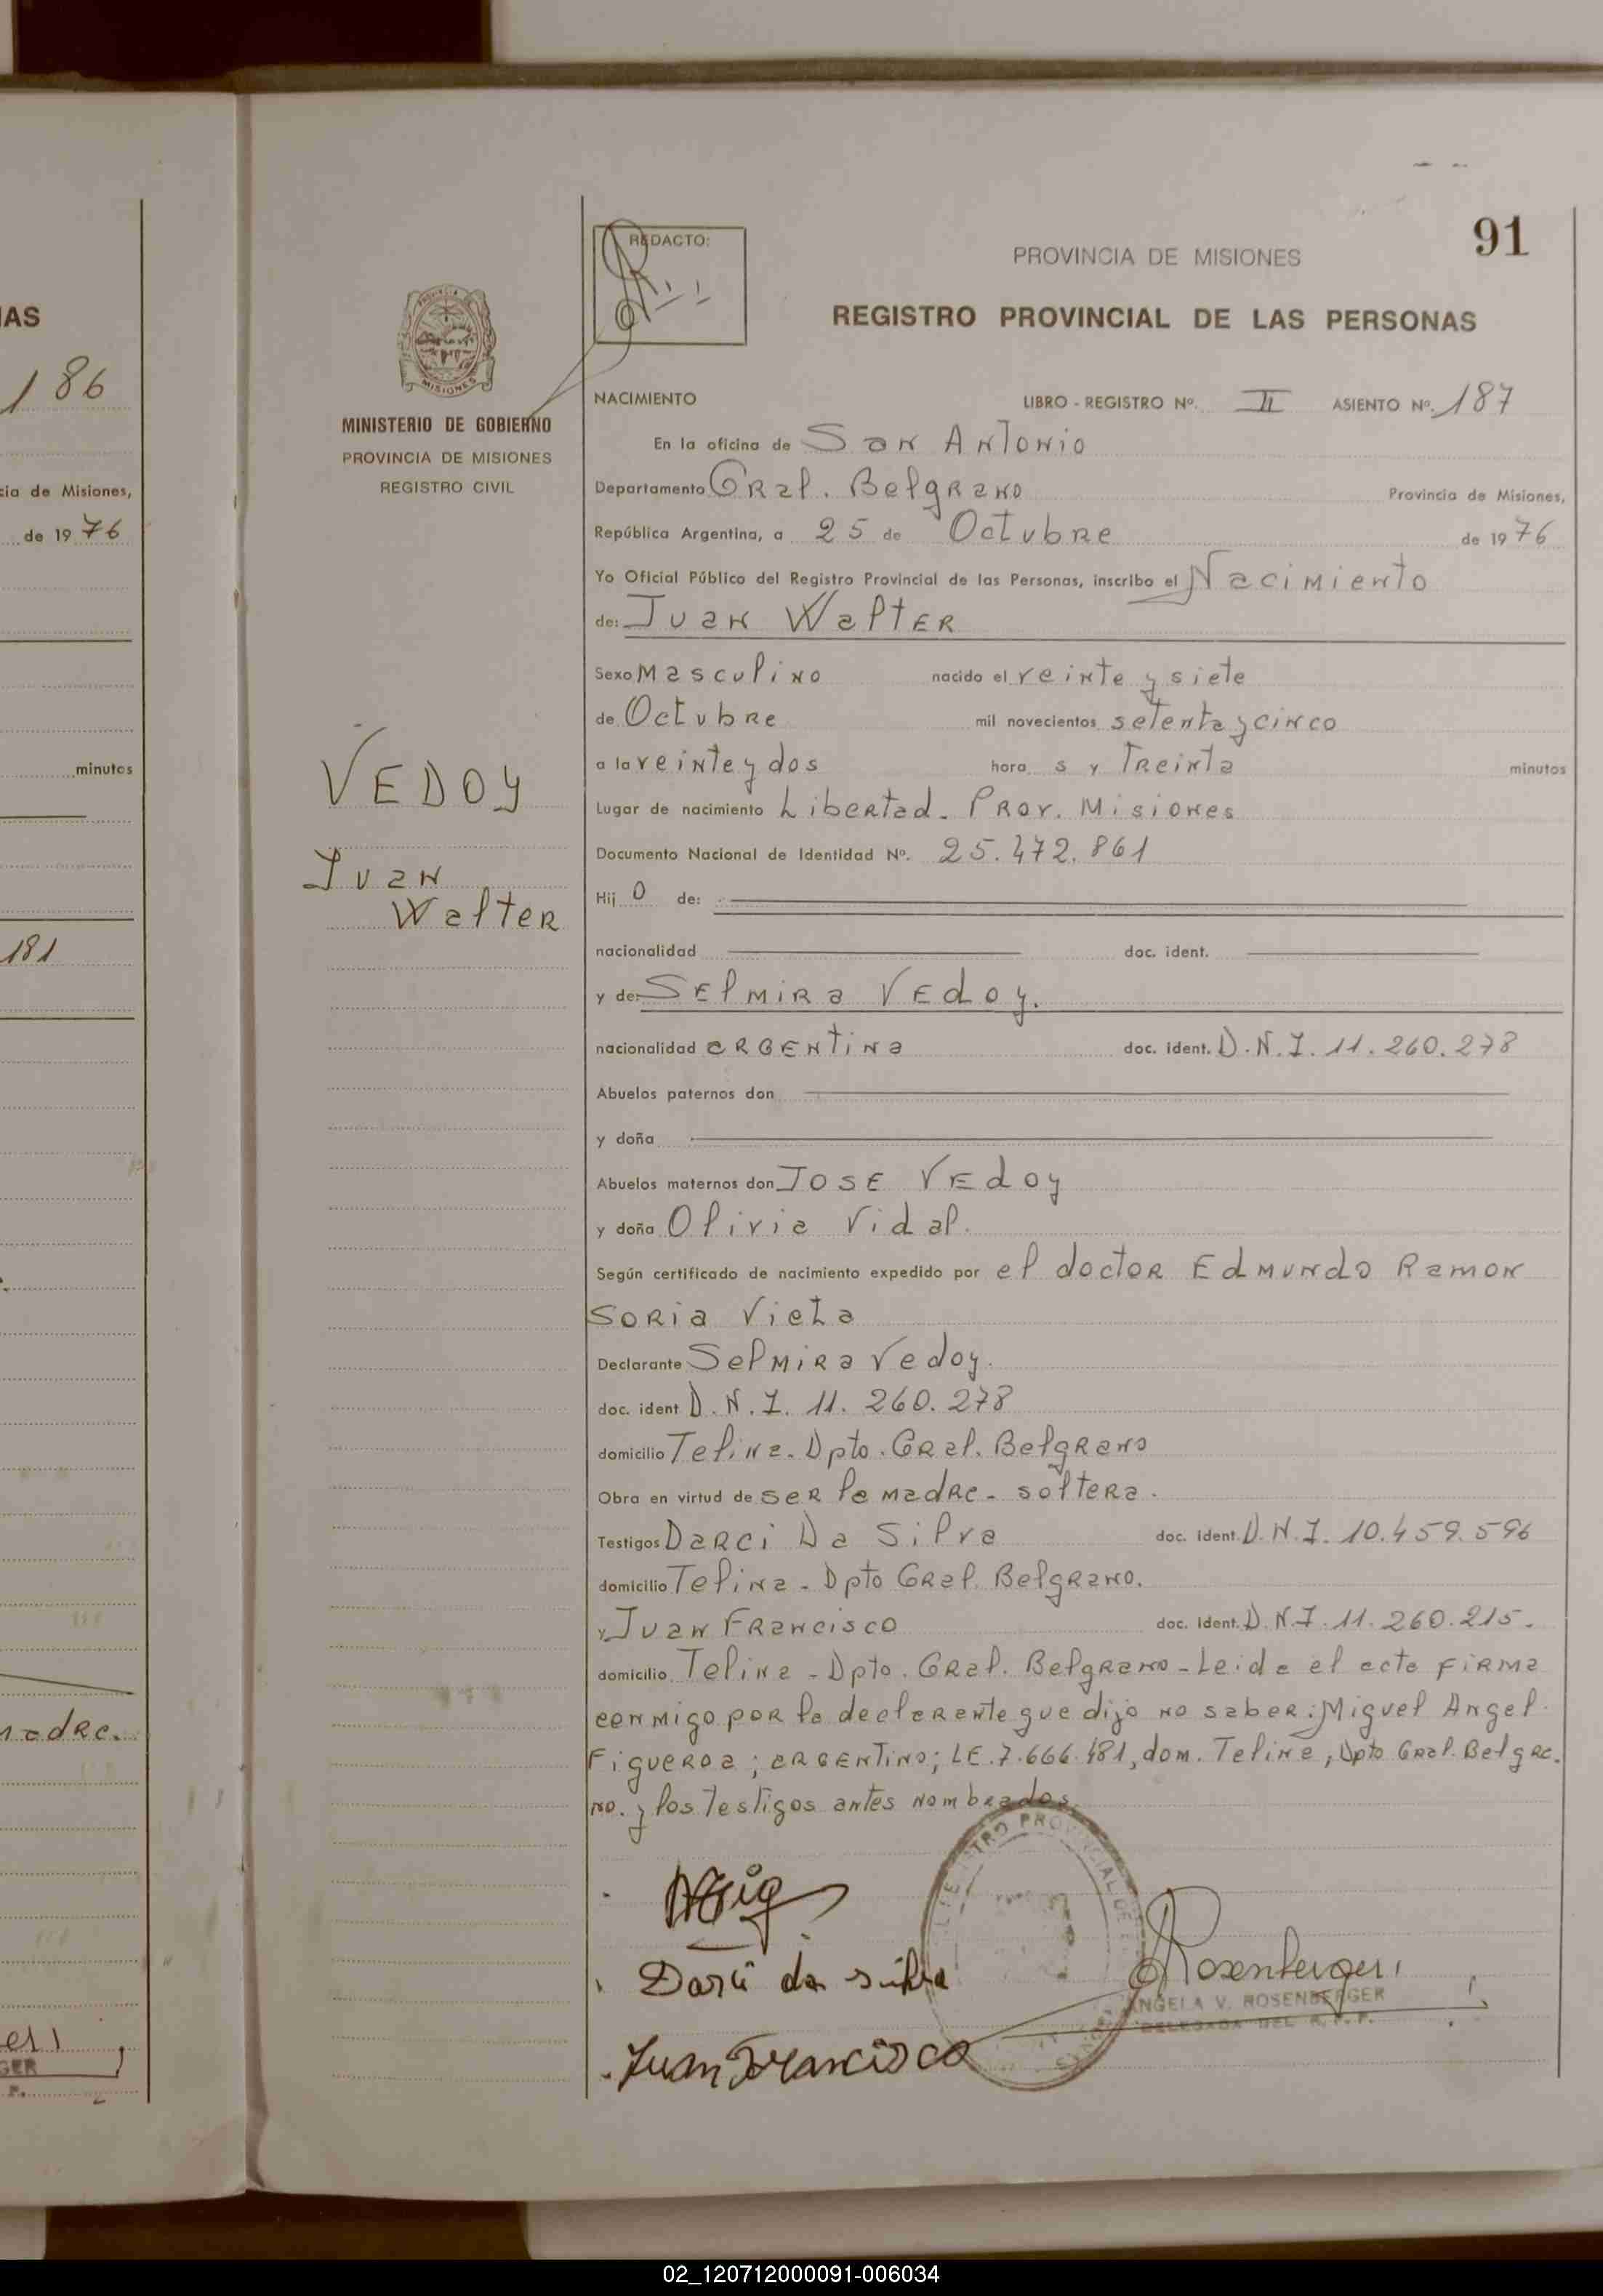 IAS
186
cia de Misiones,
de 1976
minutos
181
madre.
GER
91
REDACTO:
PROVINCIA DE MISIONES
REGISTRO PROVINCIAL DE LAS PERSONAS
MISIONES
MINISTERIO DE GOBIERNO
PROVINCIA DE MISIONES
REGISTRO CIVIL
VEDOY
Juan
Walter
NACIMIENTO LIBRO - REGISTRO Nº. II ASIENTO Nº. 187
En la oficina de San Antonio
Departamento Gral. Belgrano Provincia de Misiones,
República Argentina, a 25 de Octubre de 1976
Yo Oficial Público del Registro Provincial de las Personas, inscribo el Nacimiento
de: Juan Walter
Sexo Masculino nacido el veinte y siete
de Octubre mil novecientos setenta y cinco
a la veinte y dos hora s y Treinta minutos
Lugar de nacimiento Libertad - Prov. Misiones
Documento Nacional de Identidad Nº. 25.472.861
Hij o de:
nacionalidad doc. ident.
y de: Selmira Vedoy.
nacionalidad argentina doc. ident. D.N.I. 11.260.278
Abuelos paternos don
y doña
Abuelos maternos don Jose Vedoy
y doña Olivia Vidal.
Según certificado de nacimiento expedido por el doctor Edmundo Ramon
Soria Vieta
Declarante Selmira Vedoy.
doc. ident D.N.I. 11.260.278
domicilio Telina - Dpto. Gral. Belgrano
Obra en virtud de ser la madre - soltera.
Testigos Darci Da Silva doc. ident. D.N.I. 10.459.596
domicilio Telina - Dpto Gral. Belgrano.
y Juan Francisco doc. ident. D.N.I. 11.260.215.
domicilio Telina - Dpto. Gral. Belgrano - Leida el acta firma
conmigo por la declarante que dijo no saber: Miguel Angel
Figueroa; argentino; LE. 7.666.481, dom. Telina, Dpto Gral. Belgra-
no. y los testigos antes nombrados.
Darci da silva
Rosenberger
ANGELA V. ROSENBERGER
DELEGADA DEL R. P. P.
Juan Francisco
02_120712000091-006034